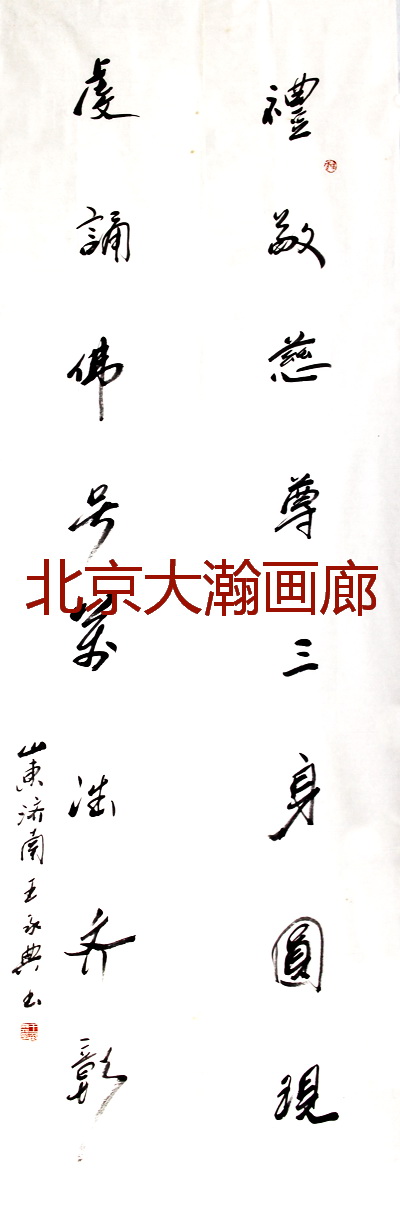 禮敬慈尊三身圓現
虔誦佛号萬法齐彰
山東济南王永典书
北京大瀚画廊